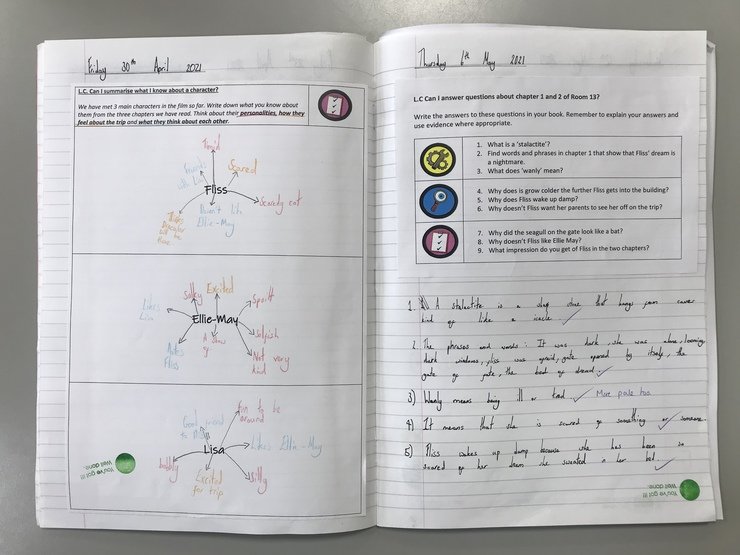 Friday 30th April 2021
L.C. Can I summarise what I know about a character?
We have met 3 main characters in the film so far. Write down what you know about
them from the three chapters we have read. Think about their personalities, how they
feel about the trip and what they think about each other.
Timid
Friends
with Lisa
Scared
Fliss
Scaredy cat
Doesn't like
Ellie-May
Thinks
Dracular
will be
there
Salky
Excited
Spoilt
Likes
Lisa
Ellie-May
Selfish
Hates
Fliss
A show
of
Not very
kind
fun to be
around
Good friend
to
Lisa
Likes Ellie-May
bubbly
Excited
for trip
Silly
You've got it!
Well done.
Thursday 6th May 2021
L.C Can I answer questions about chapter 1 and 2 of Room 13?
Write the answers to these questions in your book. Remember to explain your answers and
use evidence where appropriate.
1. What is a 'stalactite'?
2. Find words and phrases in chapter 1 that show that Fliss' dream is
a nightmare.
3. What does 'wanly' mean?
4. Why does is grow colder the further Fliss gets into the building?
5. Why does Fliss wake up damp?
6. Why doesn't Fliss want her parents to see her off on the trip?
7. Why did the seagull on the gate look like a bat?
8. Why doesn't Fliss like Ellie May?
9. What impression do you get of Fliss in the two chapters?
1. A stalactite is a that hangs from caves
kind of like a icacle.
2. The phrases and words: It was dark, she was alone, looming,
dark windows, fliss was afraid, gate opened by itself, the
gate of fate, the of dread.
3) Wanly means being ill or tired. More pale too.
4) It means that she is scared of something or someone.
5) Fliss wakes up damp because she has been so
scared of her dream she sweated in her bed.
You've got it!
Well done.